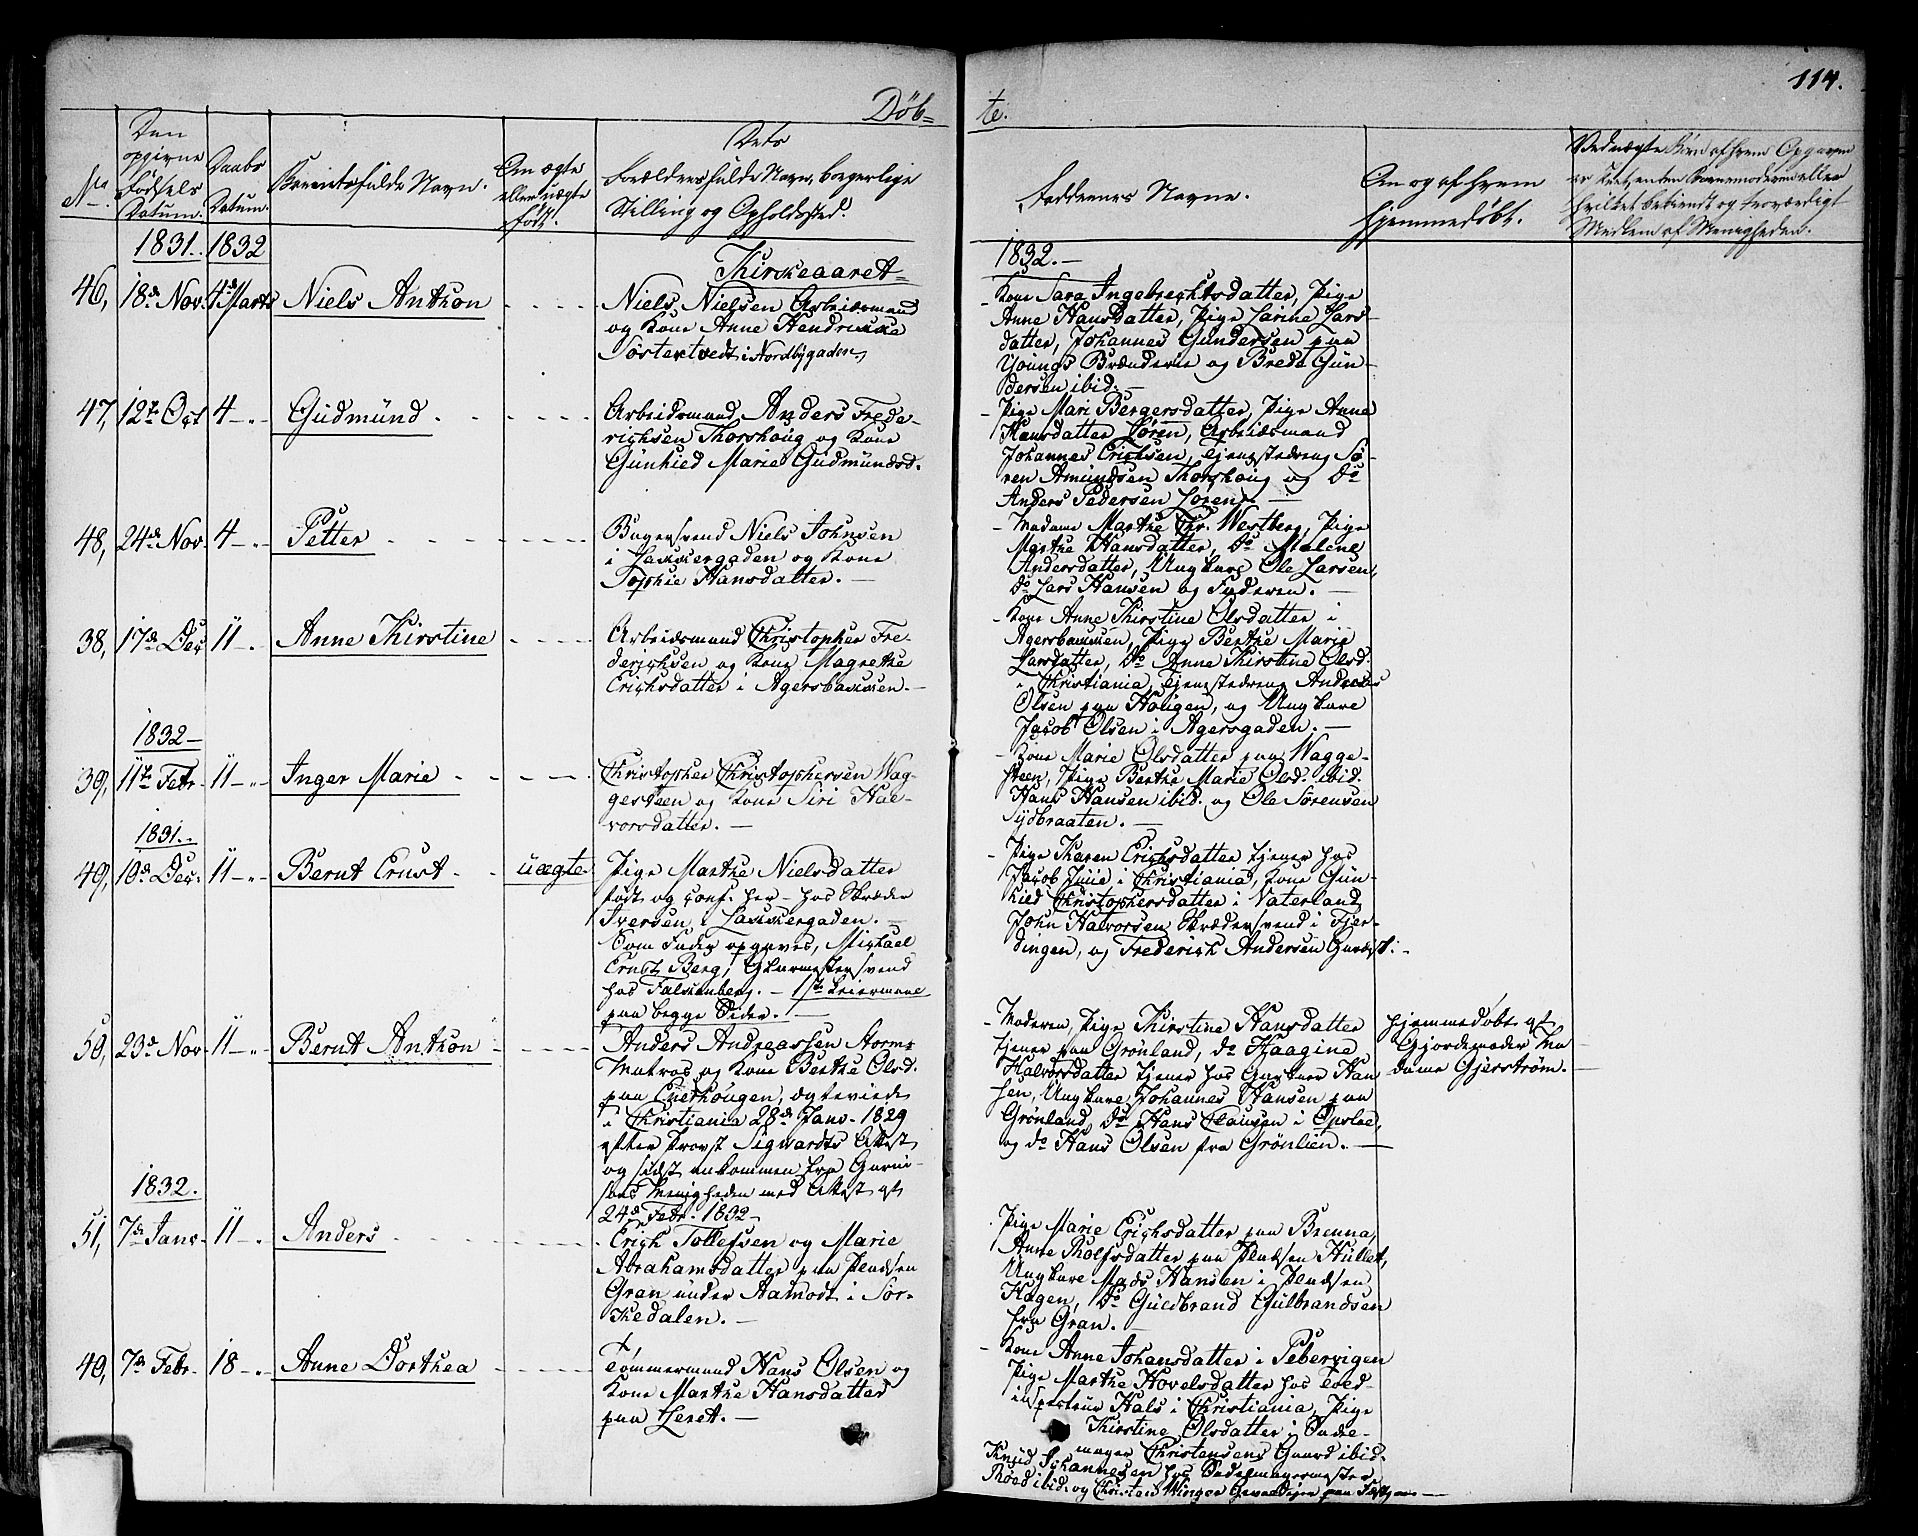 114.
Döb=
te.
No
Den
opgivne
Födsels
Datum.
Daabs
Datum.
Barnets fulde Navn.
Om ægte
eller uægte
født.
Dets
Forældres fulde Navn, borgerlige
Stilling og Opholdssted.
Faddernes Navne.
Om og af hvem
hjemmedøbt.
Ved uægte Børn af hvem Opgaven
er skeet, enten Barnemoderen eller
hvilket bekiendt og troværdigt
Medlem af Menigheden.
1831. 1832
Kirkeaaret
1832.
46, 18de Nov. 4de Marts Niels Anthon
Niels Nielsen Arbeidsmand
og Kone Anne Hendrikke
Söstertvedt i Nordbygaden,
Kone Sara Ingebrechtsdatter, Pige
Anne Hansdatter, Pige Karine Lars-
datter, Johannes Gundersen paa
Youngs Brænderie og Brede Gun-
dersen ibid. —
47, 12te Oct 4 — Gudmünd
Arbeidsmand Anders Frede-
richsen Thorshoug og Kone
Günhied Marie Gudmundsd.
Pige Mari Bergersdatter, Pige Anne
Hansdatter Lören, Arbeidsmand
Johannes Erichsen, Tjenestedreng Sö-
ren Amundsen Thorshoug og do
Anders Pedersen Loren. —
48, 24de Nov. 4 — Petter
Bagersvend Niels Johnsen
i Lakkergaden og Kone
Sophie Hansdatter. —
Madame Marthe Chr. Westberg, Pige
Marthe Hansdatter, do Malene
Andersdatter, Ungkarl Ole Larsen,
do Lars Hansen og Faderen. —
38, 17de Dec 11 — Anne Kirstine
Arbeidsmand Christopher Fre-
derichsen og Kone Magrethe
Erichsdatter i Agersbakken. —
Kone Anne Kirstine Olsdatter i
Agersbakken, Pige Berthe Marie
Larsdatter, do Anne Kirstine Olsd.
i Christiania, Tjenestedreng Andreas
Olsen paa Haugen, og Ungkarl
Jacob Olsen i Agersgaden. —
1832
39, 11te Febr. 11 — Inger Marie
Christopher Christophersen Wag-
gesteen og Kone Siri Hal-
vorsdatter. —
Kone Marie Olsdatter paa Wagge-
steen, Pige Berthe Marie Olsd. ibid.
Hans Hansen ibid. og Ole Sörensen
Sydbraaten. —
1831.
49, 10de Dec. 11 — Bernt Ernst uægte
Pige Marthe Nielsdatter
født og conf. her - hos Skræder
Iversen i Lakkergaden. —
Som Fader opgives, Michael
Ernst Berg, Glarmestersvend
hos Falkenberg. — 1ste Leiermaal
paa begge Sider. —
Pige Karen Erichsdatter tjener hos
Jacob Juul i Christiania, Kone Gun-
hild Christophersdatter i Vaterland
John Halvorsen Skrædersvend i Fjer-
dingen, og Frederich Andersen
50, 23de Nov 11 — Bernt Anthon
Anders Andreassen Storm
Matros og Kone Berthe Olsd.
paa Enerhougen, egteviede
i Christiania 28de Janr. 1829
efter Provst Sigwardts Attest
og sidst ankommen fra Garni-
sons Menigheden med Attest af
24de Febr. 1832 —
Moderen, Pige Kirstine Hansdatter
tjener paa Grönland, do Haagine
Halvorsdatter tjener hos Han-
sen, Ungkarl Johannes Hansen paa
Grönland, do Hans Clausen i Opsloe,
og do Hans Olsen fra Grönlien. —
hjemmedöbt af
Gjordemoder Ma
dame Gjerström. —
1832.
51, 7de Janr. 11 — Anders
Erich Tollefsen og Marie
Abrahamsdatter paa Pladsen
Gran under Aamodt i Sör-
kedalen. —
Pige Marie Erichsdatter paa Brenna,
Anne Tholfsdatter paa Pladsen Hullet,
Ungkarl Mads Hansen i Pladsen
Hagen, do Guldbrand Gulbrandsen
fra Gran. —
40, 7de Febr. 18 — Anne Dorthea
Tömmermand Hans Olsen og
Kone Marthe Hansdatter
paa Leret. —
Kone Anne Johansdatter i Pebervigen
Pige Marthe Hovelsdatter hos Told-
inspecteur Hals i Christiania, Pige
Kirstine Olsdatter i Sadel-
mager Christensens Gaard ibid.
Knud Johannesen hos Sadelmagermester
Röed ibid. og Christen Winger